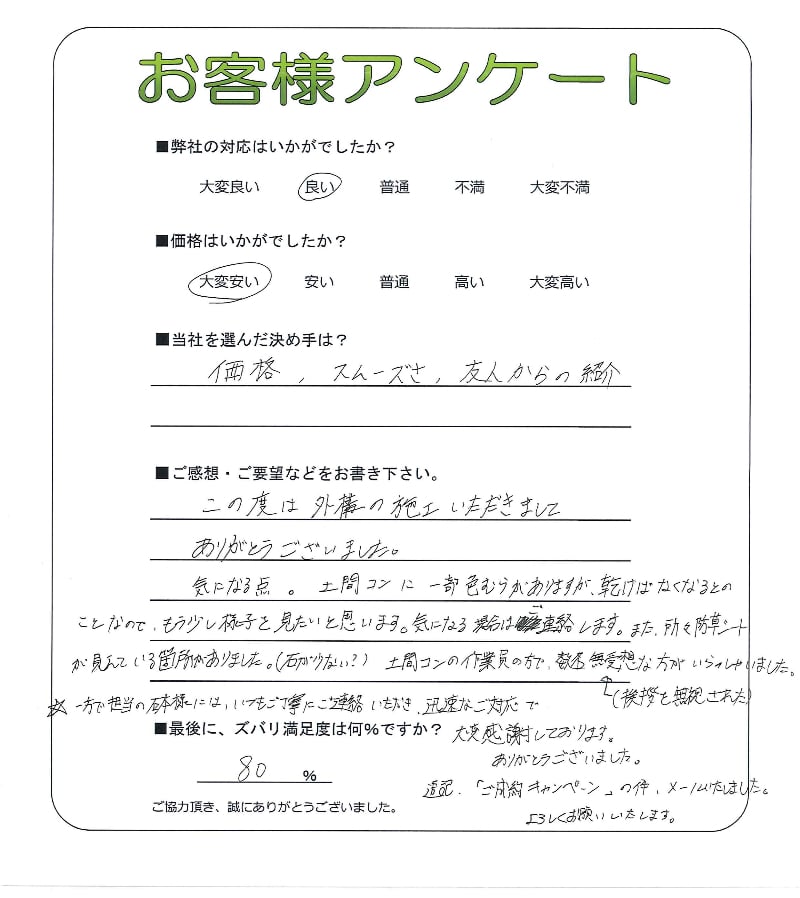 お客様アンケート
■弊社の対応はいかがでしたか？
大変良い 良い 普通 不満 大変不満
■価格はいかがでしたか？
大変安い 安い 普通 高い 大変高い
■当社を選んだ決め手は？
価格, スムーズさ, 友人からの紹介
■ご感想・ご要望などをお書き下さい。
この度は外構の施工いただきまして
ありがとうございました。
気になる点。土間コンに一部色むらがありますが、乾けばなくなるとの
ことなので、もう少し様子を見たいと思います。気になる場合はご連絡します。また、所々防草シート
が見えている箇所がありました。(石が少ない?) 土間コンの作業員の方で、無愛想な方がいらっしゃいました。
(挨拶を無視された)
☆一方で担当の 様には、いつもご丁寧にご連絡いただき、迅速なご対応で
大変感謝しております。
ありがとうございました。
■最後に、ズバリ満足度は何%ですか？
80 %
追記.「ご成約キャンペーン」の件、メールいたしました。
よろしくお願いいたします。
ご協力頂き、誠にありがとうございました。